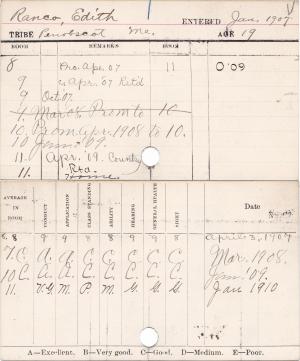 Ranco, Edith ENTERED Jan. 1907
TRIBE Penobscot Me. AGE 19
ROOM REMARKS ROOM
8 Pro. Apr. 07 11 0'09
9 Apr. 07 Ret'd
9 Oct 07
9 Mar 08 Prom to 10
10 Prom Apr. 1908 to 10.
10 Jun '09.
11 Apr. '09. Country
11. Rtd.
Home
AVERAGE IN ROOM CONDUCT APPLICATION CLASS STANDING ABILITY HEARING GENERAL HEALTH SIGHT Date
8. 8 9 9 8 9 8 8 April 3, 1907
9. C. A. A. C. C. C. C. C. Mar. 1908.
10 C. A. C. C. C. C. C. C. Jun '09.
11. V.G. M. P. M. G. G. G. Jan 1910
A—Excellent. B—Very good. C—Good. D—Medium. E—Poor.